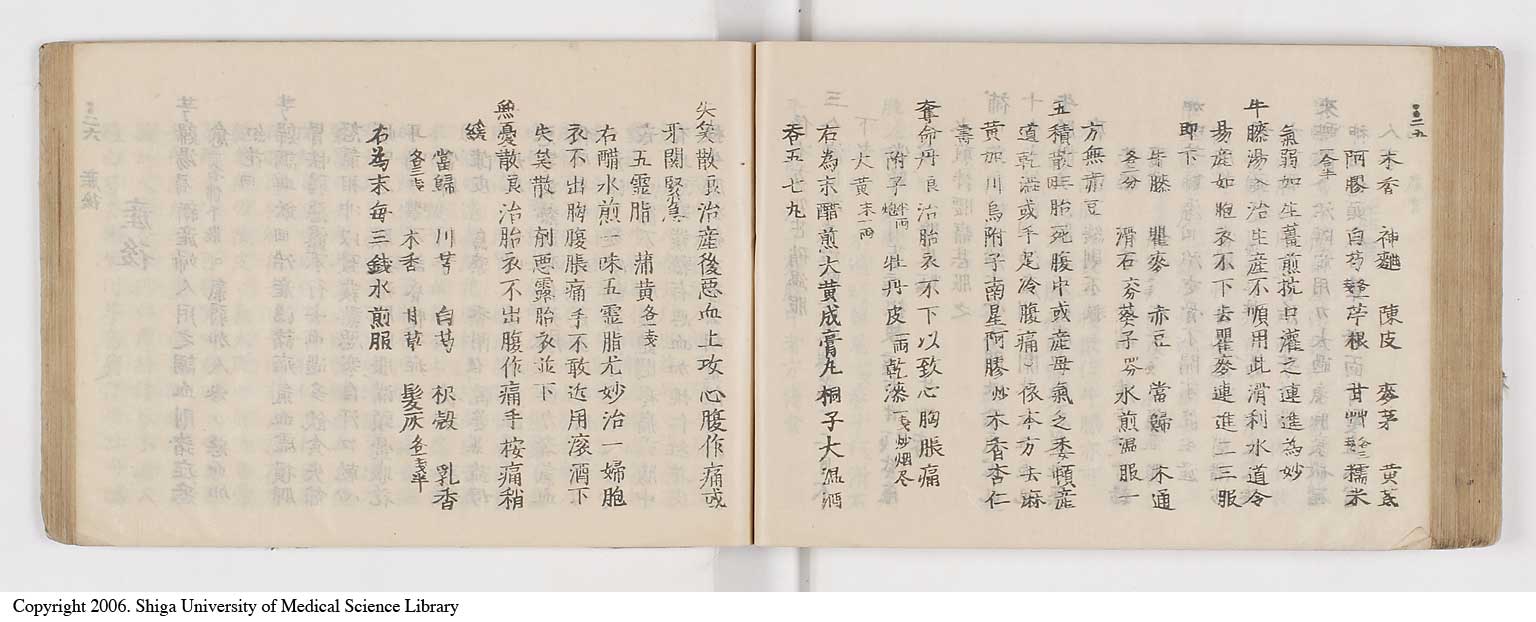 木香 神麯 陳皮 麥芽 黄芪
阿膠 白芍 苧根 甘艸 糯米
氣弱如生薑煎抗中灌之連進為妙
牛膝湯 治生産不順用此滑利水道令
易産如胞衣不下去瞿麥連進二三服
即下
牛膝 瞿麥 赤豆 當歸 木通
各二分 滑石 葵子 水煎温服一
方無赤豆
五積散 胎死腹中或産母氣乏委頓産
道乾澁或手足冷腹痛 依本方去麻
黄加川烏附子南星阿膠炒木香杏仁
奪命丹 良 治胎衣不下以致心胸脹痛
附子 炮 半兩 牡丹皮 一兩 乾漆 一戋炒烟尽
大黄 末一兩
右為末醋煎大黄成膏丸桐子大温酒
吞五七丸
失笑散 良 治産後惡血上攻心腹作痛或
牙關緊急
五靈脂 蒲黄 各一戋
右醋水煎一味五靈脂尤妙治一婦胞
衣不出胸腹脹痛手不敢近用滚酒下
失笑散一劑惡露胎衣並下
無憂散 良 治胎衣不出腹作痛手按痛稍
緩
當歸 川芎 白芍 枳殼 乳香
各三戋 木香 甘草 髮灰 各戋半
右為末每三錢水煎服
Copyright 2006. Shiga University of Medical Science Library